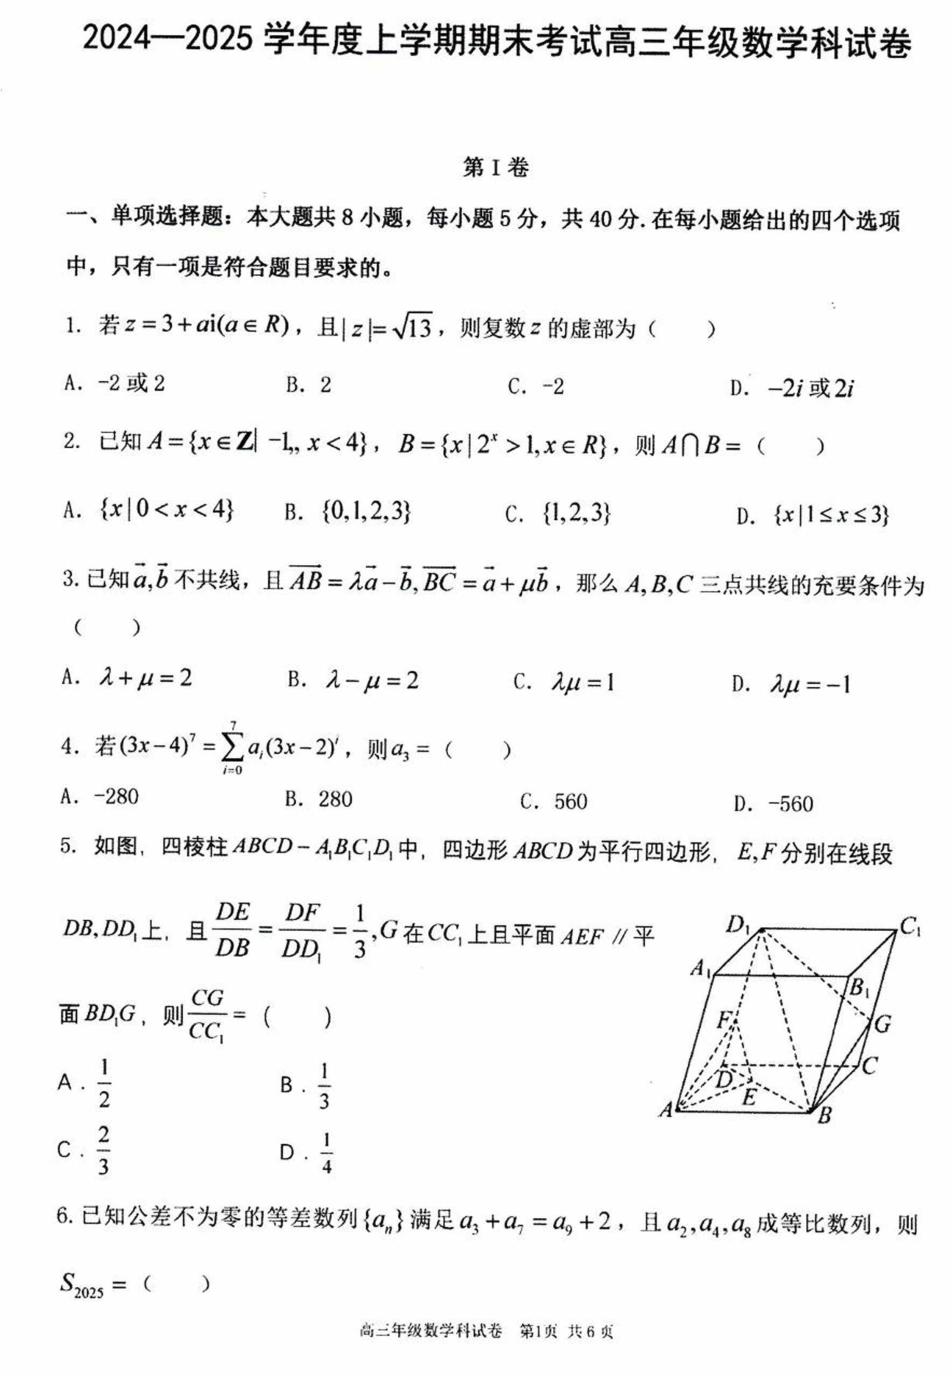 2024—2025 学年度上学期期末考试高三年级数学科试卷
第 I 卷
一、单项选择题：本大题共 8 小题，每小题 5 分，共 40 分. 在每小题给出的四个选项
中，只有一项是符合题目要求的。
1. 若 z = 3 + ai(a ∈ R)，且| z |= √13，则复数 z 的虚部为（　　）
A. -2 或 2　B. 2　C. -2　D. -2i 或 2i
2. 已知 A = {x ∈ Z| -1,, x < 4}，B = {x | 2ˣ > 1, x ∈ R}，则 A⋂B =（　　）
A. {x | 0 < x < 4}　B. {0,1,2,3}　C. {1,2,3}　D. {x|1 ≤ x ≤ 3}
3. 已知 a⃗, b⃗ 不共线，且 AB⃗ = λa⃗ − b⃗, BC⃗ = a⃗ + μb⃗，那么 A, B, C 三点共线的充要条件为
（　　）
A. λ + μ = 2　B. λ − μ = 2　C. λμ = 1　D. λμ = −1
4. 若 (3x − 4)⁷ = ∑_{i=0}^{7} aᵢ(3x − 2)ⁱ，则 a₃ =（　　）
A. -280　B. 280　C. 560　D. -560
5. 如图，四棱柱 ABCD − A₁B₁C₁D₁ 中，四边形 ABCD 为平行四边形，E, F 分别在线段
DB, DD₁ 上，且 DE/DB = DF/DD₁ = 1/3, G 在 CC₁ 上且平面 AEF // 平
面 BD₁G，则 CG/CC₁ =（　　）
A. 1/2　B. 1/3
C. 2/3　D. 1/4
D₁ C₁
A₁ B₁
F G
D C
E
A B
6. 已知公差不为零的等差数列 {aₙ} 满足 a₃ + a₇ = a₉ + 2，且 a₂, a₄, a₈ 成等比数列，则
S₂₀₂₅ =（　　）
高三年级数学科试卷　第1页 共 6 页